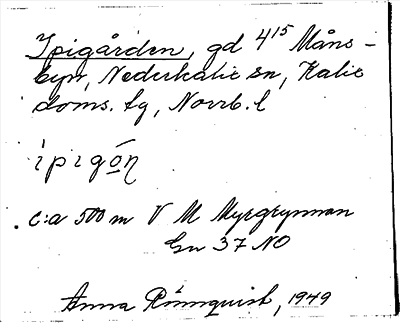 Ipigården, gd 4¹⁵ Måns-
byn, Nederkalix sn, Kalix
doms. lg, Norrb. l
ipigón
c:a 500 m V M Myrgrynnan
Gn 37 NO
Anna Rönnquist, 1949